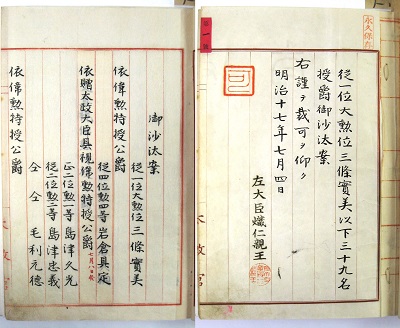 永久保存
第一號
從一位大勲位三條實美以下三十九名
授爵御沙汰案
右謹テ裁可ヲ仰ク
明治十七年七月四日
左大臣熾仁親王
可
御沙汰案
從一位大勲位三條實美
依偉勲特授公爵
從四位勲四等岩倉具定
依贈太政大臣具視偉勲特授公爵
七月八日
正二位勲一等島津久光
從二位勲二等島津忠義
仝仝毛利元德
依偉勲特授公爵
太政官